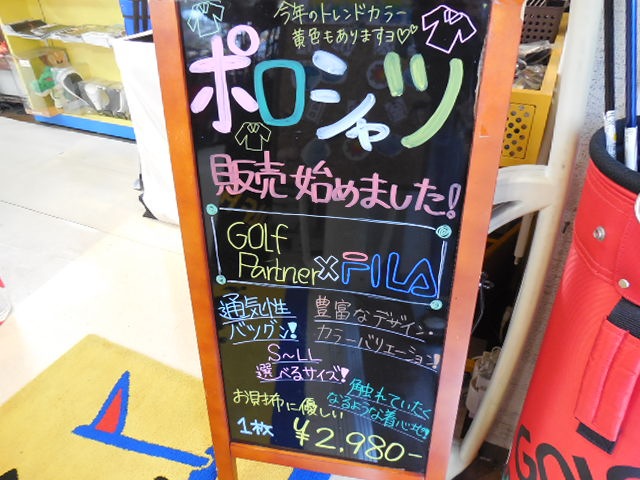 今年のトレンドカラー
黄色もありますヨ♡♡
ポロシャツ
販売始めました!
GOLf
Partner×FILA
通気性
バツグン!
豊富なデザイン・
カラーバリエーション!
S〜LL
選べるサイズ!
触れていたく
なるような着心地
お財布に優しい
1枚 ¥2,980-
GOL